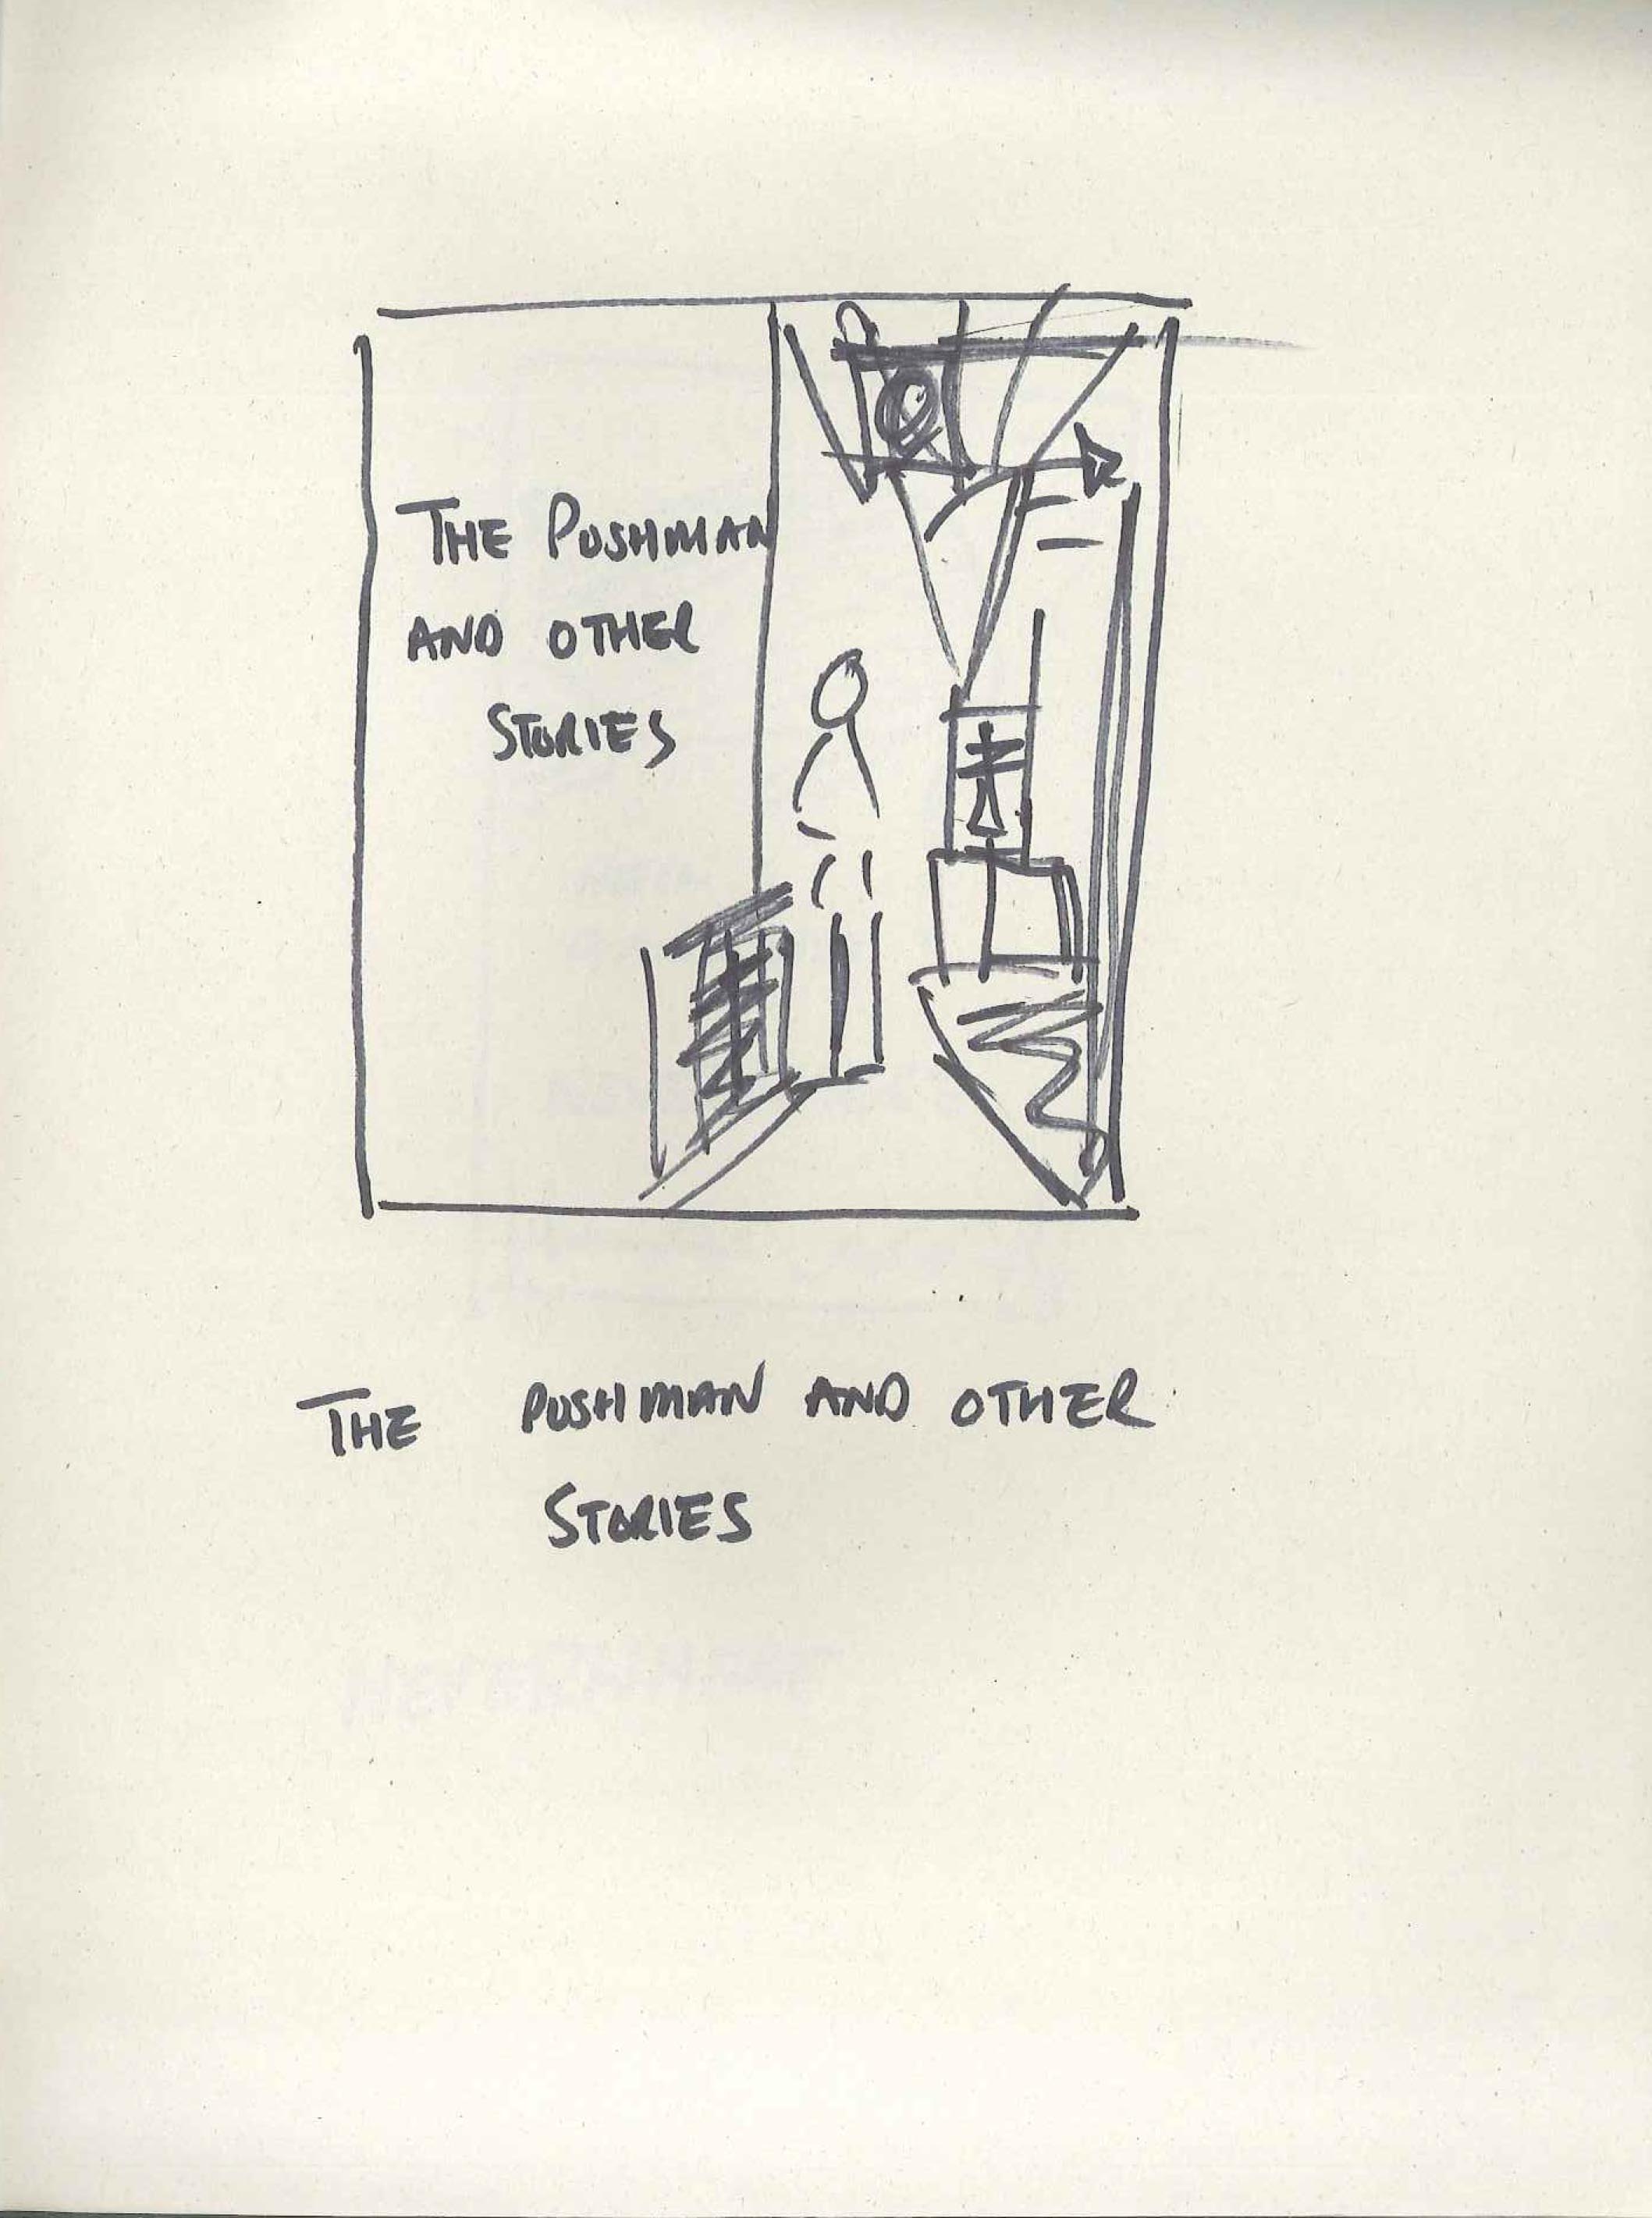 THE PUSHMAN
AND OTHER
STORIES
THE PUSHMAN AND OTHER
STORIES